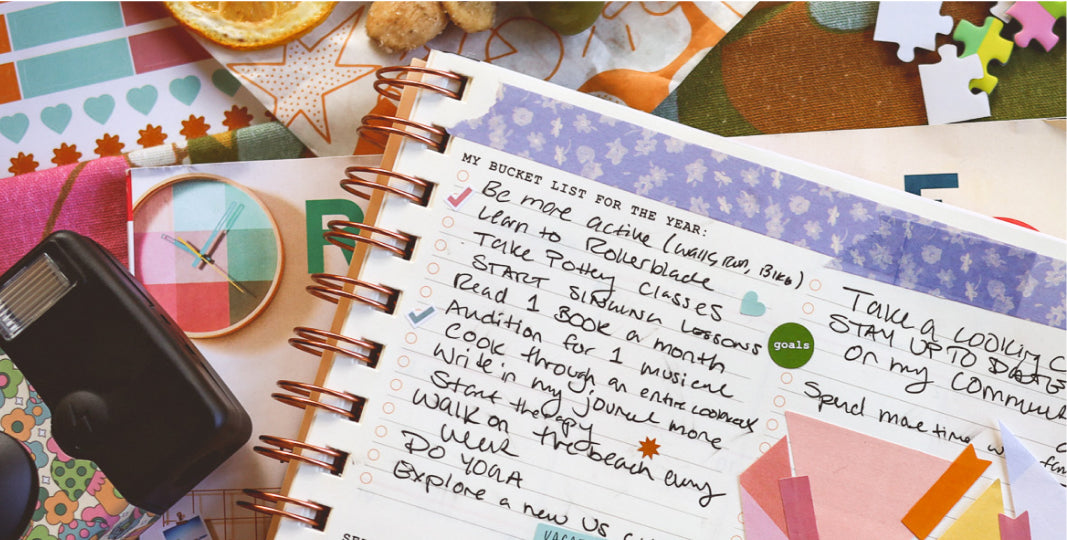 MY BUCKET LIST FOR THE YEAR:
Be more active (walk, run, Bike)
Learn to Rollerblade
Take Pottery Classes
START SINGING LESSONS
Read 1 BOOK a month
Audition for 1 musical
Cook through an entire cookbook
Write in my journal more
Start therapy
WALK on the beach every
week
DO YOGA
Explore a new US
VACA
goals
Take a cooking C
STAY UP TO DATE
on my commun
Spend more time w
fam
R